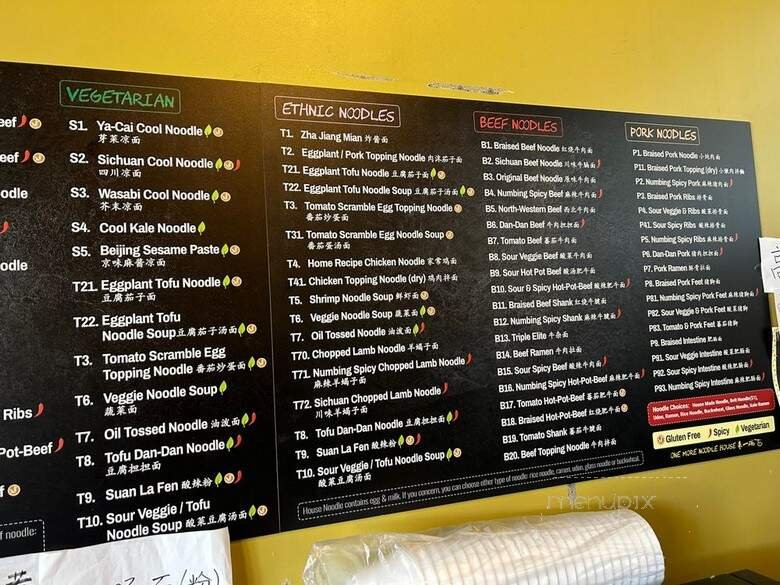 eef
eef
odle
odle
Ribs
Pot-Beef
ef
f noodle:
VEGETARIAN
S1. Ya-Cai Cool Noodle
芽菜凉面
S2. Sichuan Cool Noodle
四川凉面
S3. Wasabi Cool Noodle
芥末凉面
S4. Cool Kale Noodle
S5. Beijing Sesame Paste
京味麻酱凉面
T21. Eggplant Tofu Noodle
豆腐茄子面
T22. Eggplant Tofu
Noodle Soup 豆腐茄子汤面
T3. Tomato Scramble Egg
Topping Noodle 番茄炒蛋面
T6. Veggie Noodle Soup
蔬菜面
T7. Oil Tossed Noodle 油泼面
T8. Tofu Dan-Dan Noodle
豆腐担担面
T9. Suan La Fen 酸辣粉
T10. Sour Veggie / Tofu
Noodle Soup 酸菜豆腐汤面
ETHNIC NOODLES
T1. Zha Jiang Mian 炸酱面
T2. Eggplant / Pork Topping Noodle 肉沫茄子面
T21. Eggplant Tofu Noodle 豆腐茄子面
T22. Eggplant Tofu Noodle Soup 豆腐茄子汤面
T3. Tomato Scramble Egg Topping Noodle
番茄炒蛋面
T31. Tomato Scramble Egg Noodle Soup
番茄蛋汤面
T4. Home Recipe Chicken Noodle 家常鸡面
T41. Chicken Topping Noodle (dry) 鸡肉拌面
T5. Shrimp Noodle Soup 鲜虾面
T6. Veggie Noodle Soup 蔬菜面
T7. Oil Tossed Noodle 油泼面
T70. Chopped Lamb Noodle 羊蝎子面
T71. Numbing Spicy Chopped Lamb Noodle
麻辣羊蝎子面
T72. Sichuan Chopped Lamb Noodle
川味羊蝎子面
T8. Tofu Dan-Dan Noodle 豆腐担担面
T9. Suan La Fen 酸辣粉
T10. Sour Veggie / Tofu Noodle Soup
酸菜豆腐汤面
House Noodle contains egg & milk. If you concern, you can choose other type of noodle: rice noodle, ramen, udon, glass noodle or buckwheat.
BEEF NOODLES
B1. Braised Beef Noodle 红烧牛肉面
B2. Sichuan Beef Noodle 川味牛腩面
B3. Original Beef Noodle 原味牛肉面
B4. Numbing Spicy Beef 麻辣牛肉面
B5. North-Western Beef 西北牛肉面
B6. Dan-Dan Beef 牛肉担担面
B7. Tomato Beef 番茄牛肉面
B8. Sour Veggie Beef 酸菜牛肉面
B9. Sour Hot Pot Beef 酸汤肥牛面
B10. Sour & Spicy Hot-Pot-Beef 酸辣肥牛面
B11. Braised Beef Shank 红烧牛腱面
B12. Numbing Spicy Shank 麻辣牛腱面
B13. Triple Elite 牛杂面
B14. Beef Ramen 牛肉拉面
B15. Sour Spicy Beef 酸辣牛肉面
B16. Numbing Spicy Hot-Pot-Beef 麻辣肥牛面
B17. Tomato Hot-Pot-Beef 番茄肥牛面
B18. Braised Hot-Pot-Beef 红烧肥牛面
B19. Tomato Shank 番茄牛腱面
B20. Beef Topping Noodle 牛肉拌面
PORK NOODLES
P1. Braised Pork Noodle
P11. Braised Pork Topping (dry)
P2. Numbing Spicy Pork 麻辣猪肉面
P3. Braised Pork Ribs 排骨面
P4. Sour Veggie & Ribs 酸菜排骨面
P41. Sour Spicy Ribs 酸辣排骨
P5. Numbing Spicy Ribs 麻辣排骨面
P6. Dan-Dan Pork 猪肉担担面
P7. Pork Ramen 豚骨拉面
P8. Braised Pork Feet 猪脚面
P81. Numbing Spicy Pork Feet 麻辣猪脚面
P82. Sour Veggie & Pork Feet 酸菜猪脚
P83. Tomato & Pork Feet 番茄猪脚
P9. Braised Intestine 肥肠面
P91. Sour Veggie Intestine 酸菜肥肠面
P92. Sour Spicy Intestine 酸辣肥肠面
P93. Numbing Spicy Intestine 麻辣肥肠面
Noodle Choices: House Made Noodle, Belt Noodle($1),
Udon, Ramen, Rice Noodle, Buckwheat, Glass Noodle, Kale Ramen
Gluten Free Spicy Vegetarian
ONE MORE NOODLE HOUSE
menupix